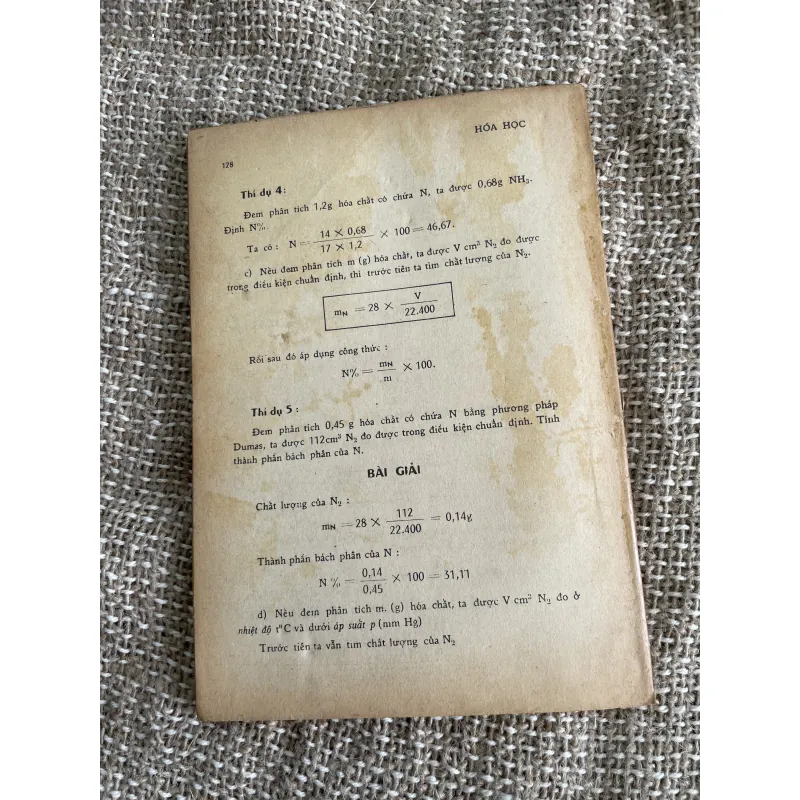 128
HÓA HỌC
Thí dụ 4:
Đem phân tích 1,2g hóa chất có chứa N, ta được 0,68g NH₃.
Định N%.
Ta có : N = 14 × 0,68 / 17 × 1,2 × 100 = 46,67.
c) Nếu đem phân tích m (g) hóa chất, ta được V cm³ N₂ đo được
trong điều kiện chuẩn định, thì trước tiên ta tìm chất lượng của N₂.
mN = 28 × V / 22.400
Rồi sau đó áp dụng công thức :
N% = mN / m × 100.
Thí dụ 5 :
Đem phân tích 0,45 g hóa chất có chứa N bằng phương pháp
Dumas, ta được 112cm³ N₂ đo được trong điều kiện chuẩn định. Tính
thành phần bách phân của N.
BÀI GIẢI
Chất lượng của N₂ :
mN = 28 × 112 / 22.400 = 0,14g
Thành phần bách phân của N :
N % = 0,14 / 0,45 × 100 = 31,11
d) Nếu đem phân tích m. (g) hóa chất, ta được V cm³ N₂ đo ở
nhiệt độ t°C và dưới áp suất p (mm Hg)
Trước tiên ta vẫn tìm chất lượng của N₂